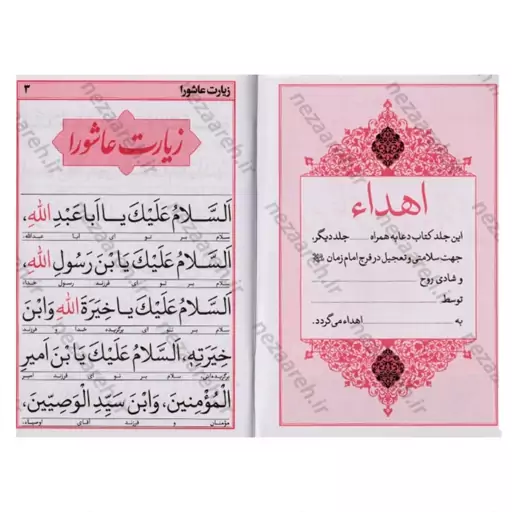 اهداء
این جلد کتاب دعا به همراه ...... جلد دیگر،
جهت سلامتی و تعجیل در فرج امام زمان
و شادی روح
توسط
به ...... اهداء می‌گردد.
زیارت عاشورا ۳
زیارت عاشورا
اَلسَّلامُ عَلَيْكَ يا اَبا عَبْدِ اللهِ،
سلام بر تو ای ابا عبدالله،
اَلسَّلامُ عَلَيْكَ يَا بْنَ رَسُولِ اللهِ،
سلام بر تو ای فرزند رسول خدا،
اَلسَّلامُ عَلَيْكَ يا خِيَرَةَ اللهِ وَابْنَ
سلام بر تو ای برگزیده خدا و فرزند
خِيَرَتِهِ، اَلسَّلامُ عَلَيْكَ يَا بْنَ اَميرِ
برگزیده‌اش، سلام بر تو ای فرزند امیر
الْمُؤْمِنينَ، وَابْنَ سَيِّدِ الْوَصِيّينَ،
مؤمنان و فرزند آقای اوصیاء،
nezaareh.ir
nezaareh.ir
nezaareh.ir
nezaareh.ir